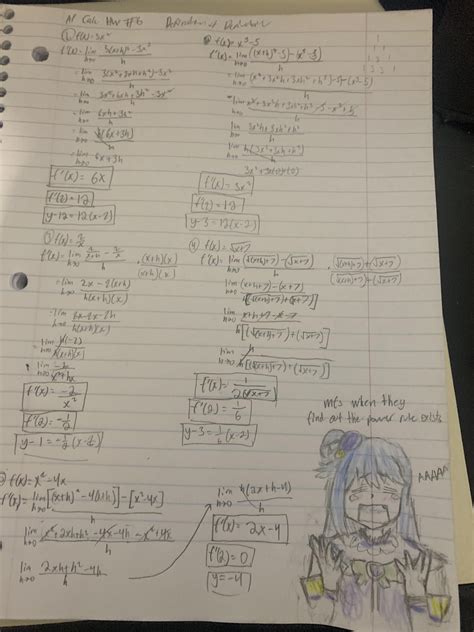 AP Calc HW #6 Definition of Derivative
1) f(x)=3x²
f'(x)= lim h→0 3(x+h)²-3x² / h
= lim h→0 3(x²+2xh+h²)-3x² / h
= lim h→0 3x²+6xh+3h²-3x² / h
= lim h→0 6xh+3h² / h
= lim h→0 h(6x+3h) / h
= lim h→0 6x+3h
f'(x)=6x
f'(2)=12
y-12=12(x-2)
2) f(x)=x³-5
f'(x)= lim h→0 ((x+h)³-5)-(x³-5) / h
= lim h→0 (x³+3x²h+3xh²+h³)-5-(x³-5) / h
= lim h→0 x³+3x²h+3xh²+h³-5-x³+5 / h
lim h→0 3x²h+3xh²+h³ / h
lim h→0 h(3x²+3xh+h²) / h
f'(x)=3x²
f'(2)=12
y-3=12(x-2)
3) f(x)=2/x
f'(x)= lim h→0 2/(x+h) - 2/x / h · (x+h)(x) / (x+h)(x)
= lim h→0 2x-2(x+h) / h(x+h)(x)
= lim h→0 2x-2x-2h / h(x+h)(x)
lim h→0 h(-2) / h(x+h)(x)
lim h→0 -2 / x²+hx
f'(x)=-2/x²
f'(2)=-1/2
y-1=-1/2(x-2)
4) f(x)=√x+7
f'(x)= lim h→0 √((x+h)+7)-(√x+7) / h · √((x+h)+7)+(√x+7) / √((x+h)+7)+(√x+7)
lim h→0 (x+h+7)-(x+7) / h[(√(x+h)+7)+(√x+7)]
lim h→0 x+h+7-x-7 / h[(√(x+h)+7)+(√x+7)]
lim h→0 h / h[(√(x+h)+7)+(√x+7)]
f'(x)= 1 / 2(√x+7)
f'(2)=1/6
y-3=1/6(x-2)
mfs when they
find out the power rule exists
AAAAA
f(x)=x²-4x
f'(x)= lim h→0 [(x+h)²-4(x+h)]-[x²-4x] / h
lim h→0 x²+2xh+h²-4x-4h-x²+4x / h
lim h→0 2xh+h²-4h / h
lim h→0 h(2x+h-4) / h
f'(x)=2x-4
f'(2)=0
y=-4